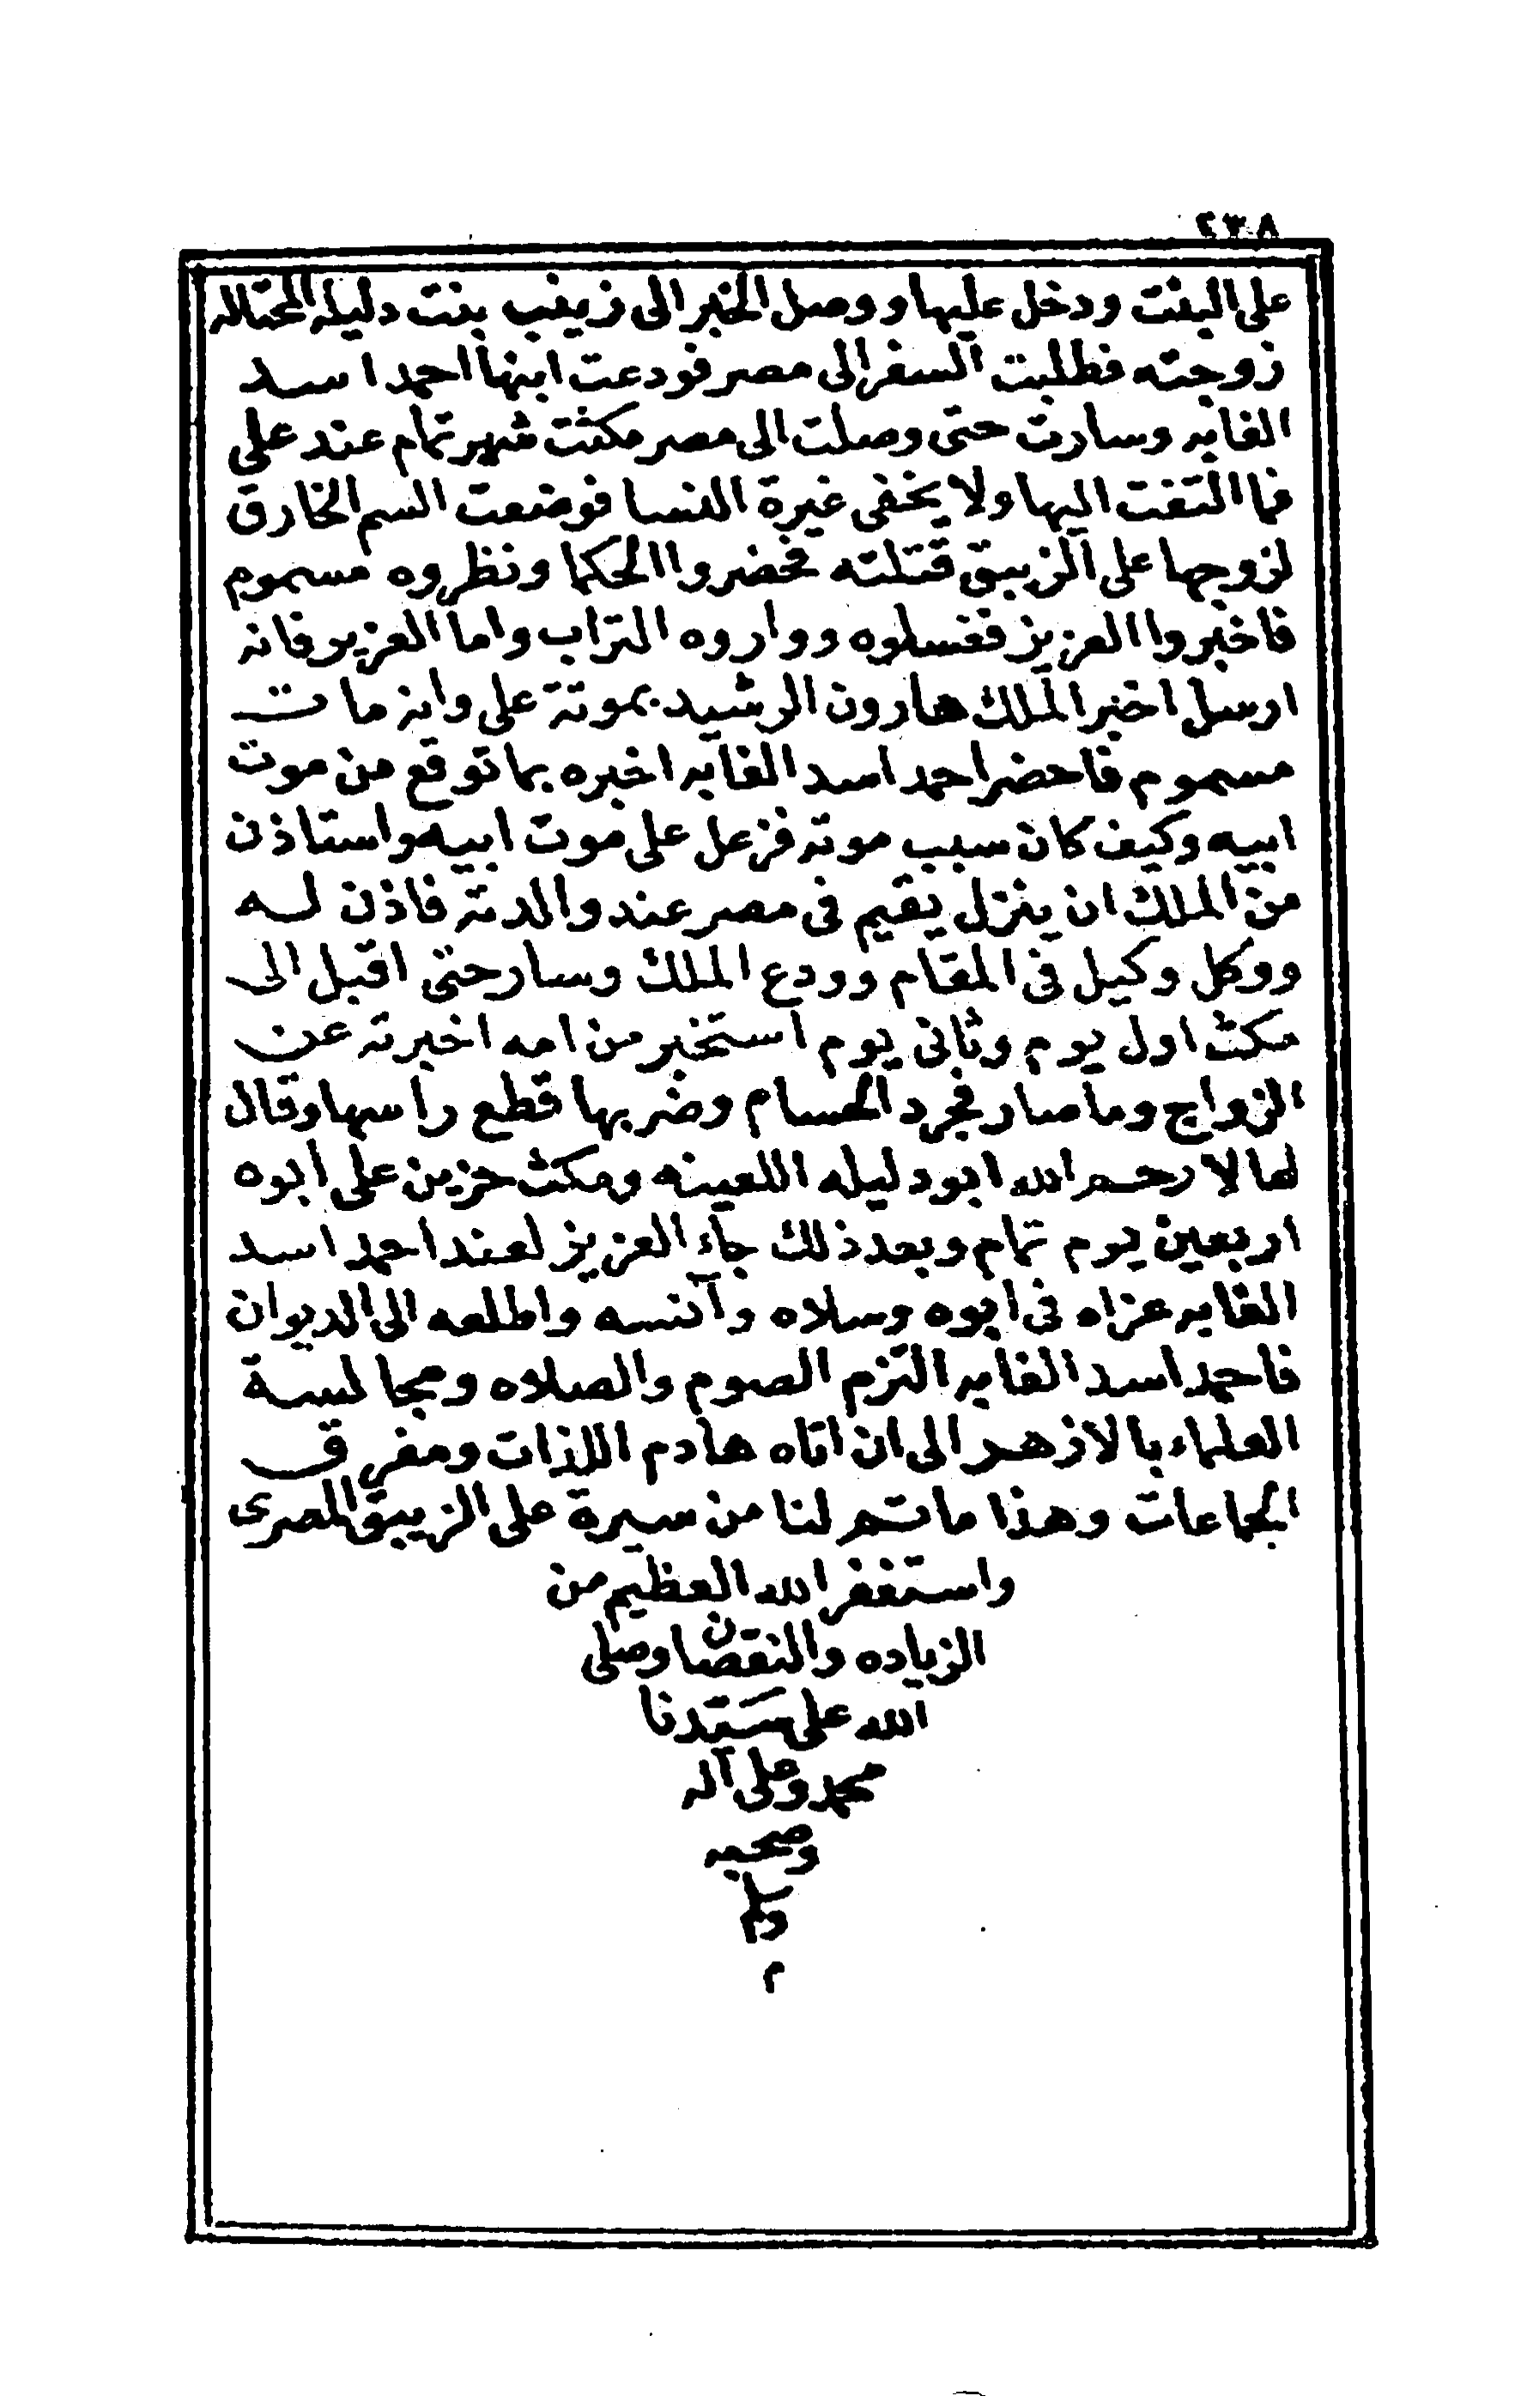 ٢٣٨
على البنت ودخل عليها ووصل الخبر الى زينب بنت دليله المحتاله
زوجته فطلبت السفر الى مصر فودعت ابنها احمد اسد
الغابه وسارت حتى وصلت الى مصر مكثت شهر تمام عند على
فما التفت اليها ولا يخفى غيرة النسا فوضعت السم الخارق
لزوجها على الزيبق قتلته فحضروا الحكما ونظروه مسموم
فاخبروا العزيز فغسلوه وواروه التراب واما العزيز فانه
ارسل اخبر الملك هارون الرشيد بموتة على وانه مات
مسموم فاحضر احمد اسد الغابه اخبره بما توقع من موت
ابيه وكيف كان سبب موته فزعل على موت ابيه واستاذن
من الملك ان ينزل يقيم فى مصر عند والدته فاذن له
ووكل وكيل فى المقام وودع الملك وسار حتى اقبل الى
مكث اول يوم وثانى يوم استخبر من امه اخبرته عن
الزواج وما صار فجرد الحسام وضربها قطع راسها وقال
لها لا رحم الله ابو دليله اللعينه ومكث حزين على ابوه
اربعين يوم تمام وبعد ذلك جاء العزيز لعند احمد اسد
الغابه عزاه فى ابوه وسلاه وآنسه واطلعه الى الديوان
فاحمد اسد الغابه التزم الصوم والصلاه ومجالسة
العلماء بالازهر الى ان اتاه هادم اللذات ومفرق
الجماعات وهذا ما تم لنا من سيرة على الزيبق المصرى
واستغفر الله العظيم من
الزياده والنقصان وصلى
الله على سيدنا
محمد وعلى آله
وصحبه
وسلم
م